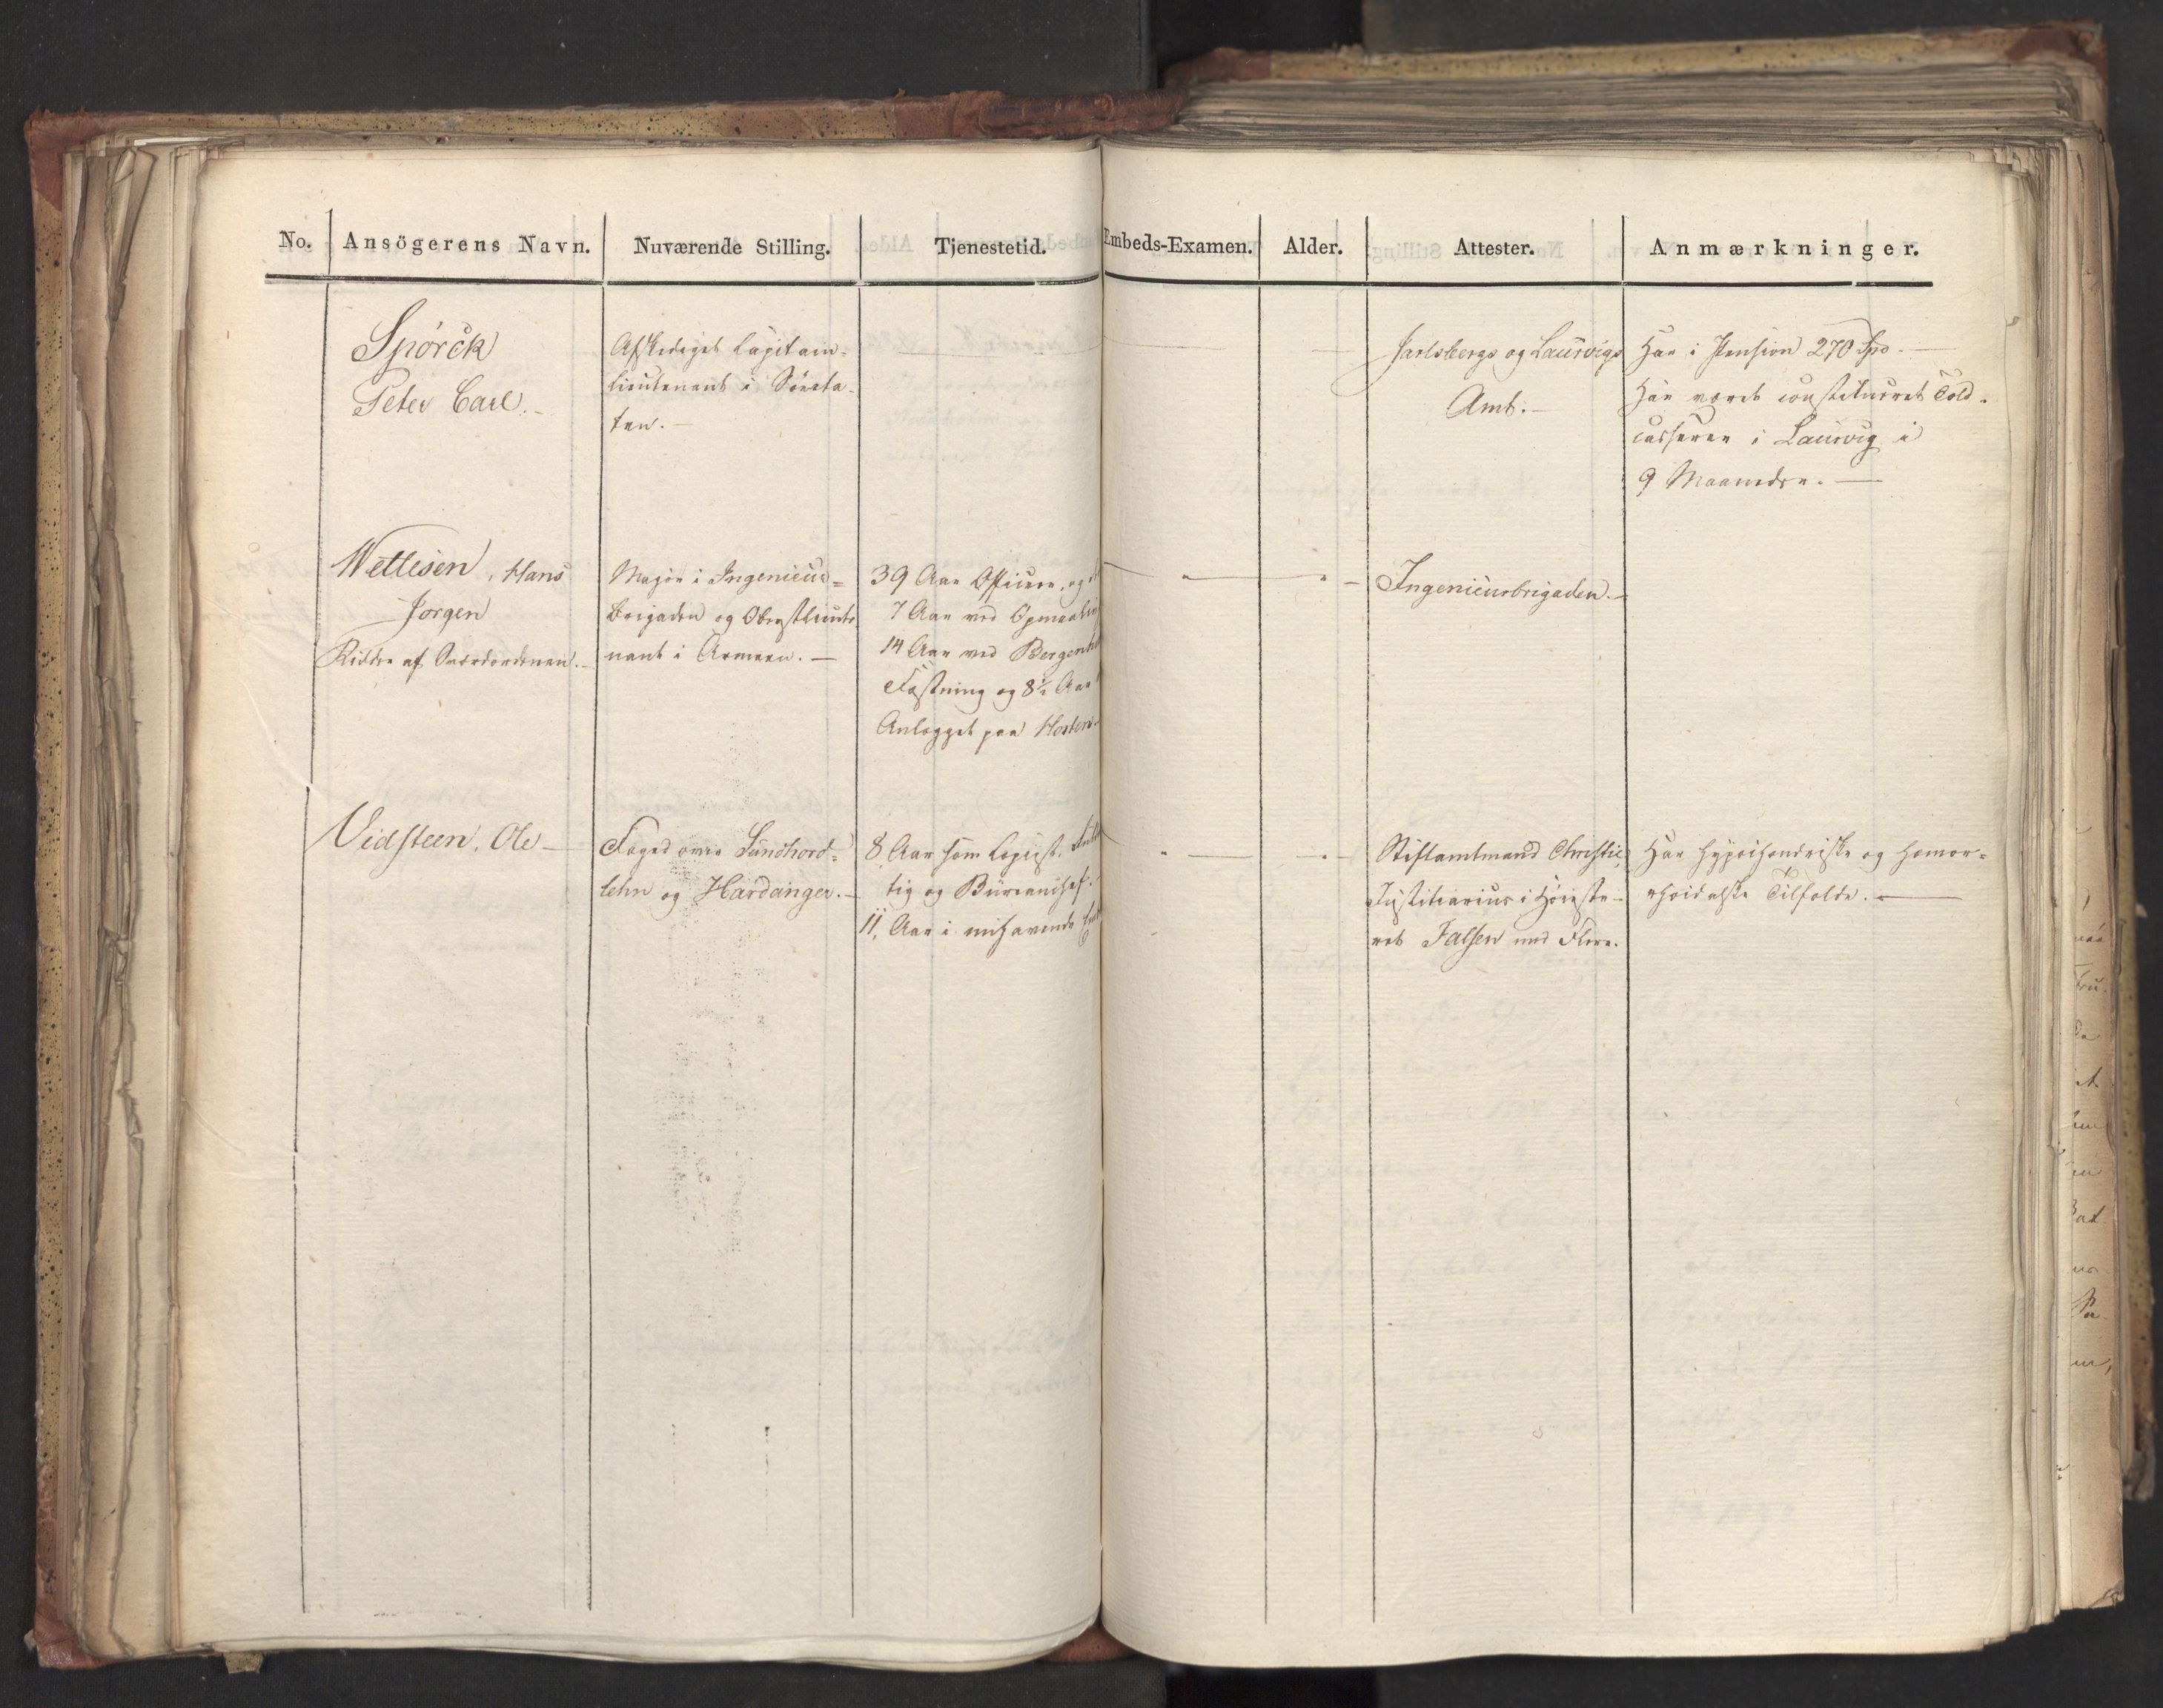 No. Ansögerens Navn. Nuværende Stilling. Tjenestetid. Embeds-Examen. Alder. Attester. Anmærkninger.
Spörck
Peter Carl.
Afskediget Capitain-
lieutenant i Søeeta-
ten. —
Jarlsbergs og Laurvigs
Amt. —
Har i Pension 270 Spd. —
Har været constitueret Told-
casserer i Laurvig i
9 Maaneder. —
Wetlesen, Hans
Jørgen
Ridder af Sværdordenen. —
Major i Ingenieur-
brigaden og Oberstlieute-
nant i Armeen. —
39 Aar Officeer, og
7 Aar ved Opmaaling
14 Aar ved Bergenh
Fæstning og 8½ Aar
Anlægget paa Horten
Ingenieurbrigaden. —
Vidsteen, Ole —
Foged over Søndhord-
lehn og Hardanger. —
8 Aar som Copiist, Fuld
tig og Büreauchef.
11, Aar i nuhavende
Stiftamtmand Christie,
Justitiarius i Høieste-
ret Falsen med Flere.
Har hypochondriske og hæmor-
rhoidalske Tilfælde. —